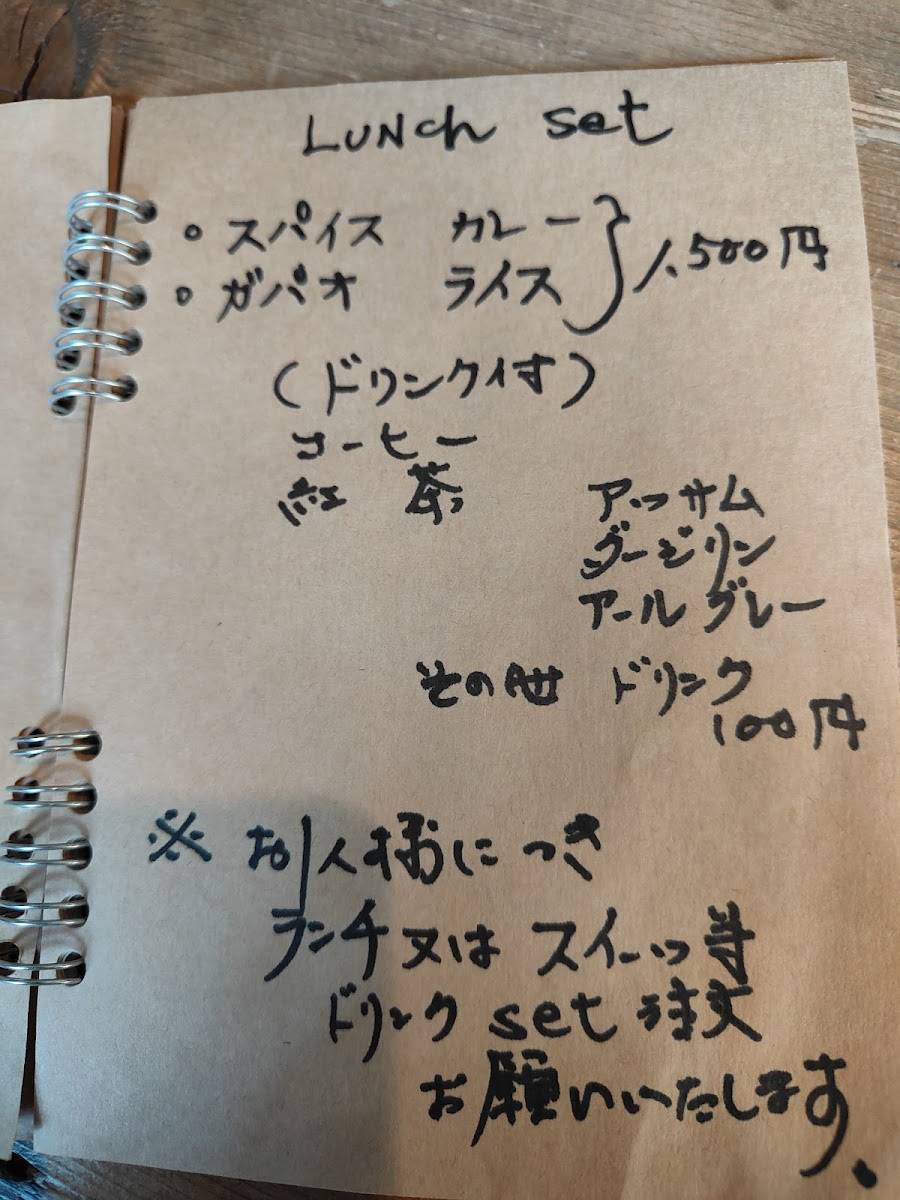 LUNCh set
・スパイス カレー } 1.500円
・ガパオ ライス
(ドリンク付)
コーヒー
紅茶 アッサム
ダージリン
アールグレー
その他 ドリンク
100円
※ お1人様につき
ランチ又は スイーツ等
ドリンク set 注文
お願いいたします。